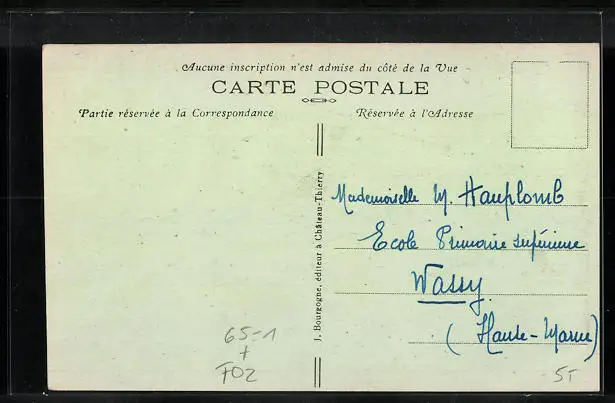 Aucune inscription n'est admise du côté de la Vue
CARTE POSTALE
Partie réservée à la Correspondance
Réservée à l'Adresse
J. Bourgogne, éditeur à Château-Thierry
Mademoiselle M. Hauplomb
Ecole Primaire supérieure
Wassy
(Haute-Marne)
65-1
+
F02
5T